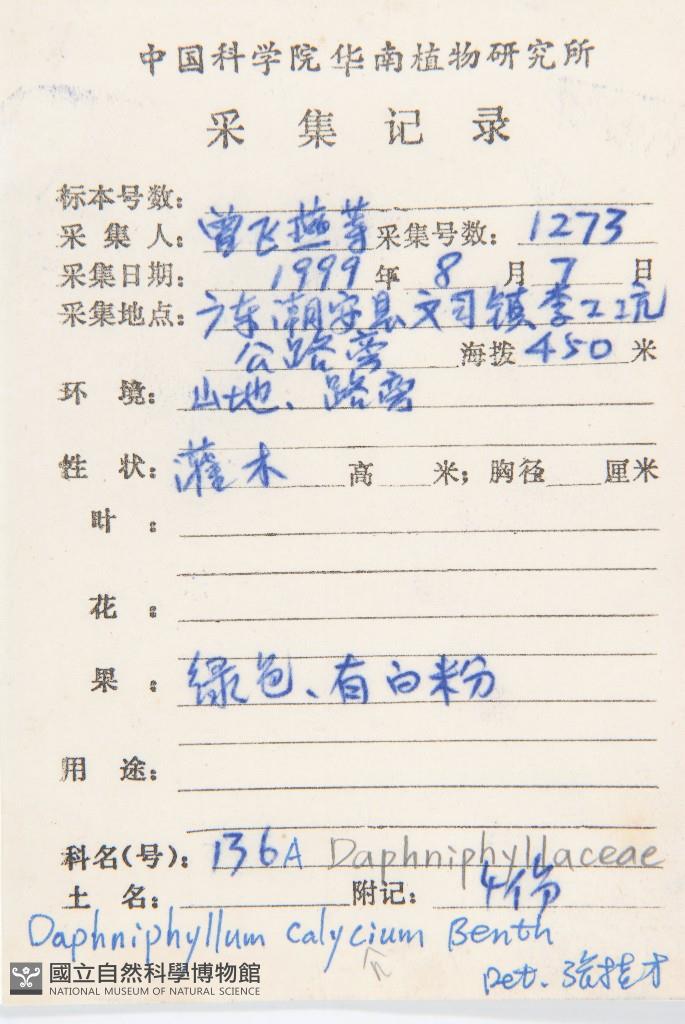 中国科学院华南植物研究所
采集记录
标本号数:
采集人: 曾飞燕等 采集号数: 1273
采集日期: 1999 年 8 月 7 日
采集地点: 广东潮安县文习镇李工坑
公路旁 海拨 450 米
环境: 山地、路旁
性状: 灌木 高 米; 胸径 厘米
叶:
花:
果: 绿色、有白粉
用途:
科名(号): 136A Daphniphyllaceae
土名: 附记: 4份
Daphniphyllum calycium Benth
Det. 张桂才
國立自然科學博物館
NATIONAL MUSEUM OF NATURAL SCIENCE